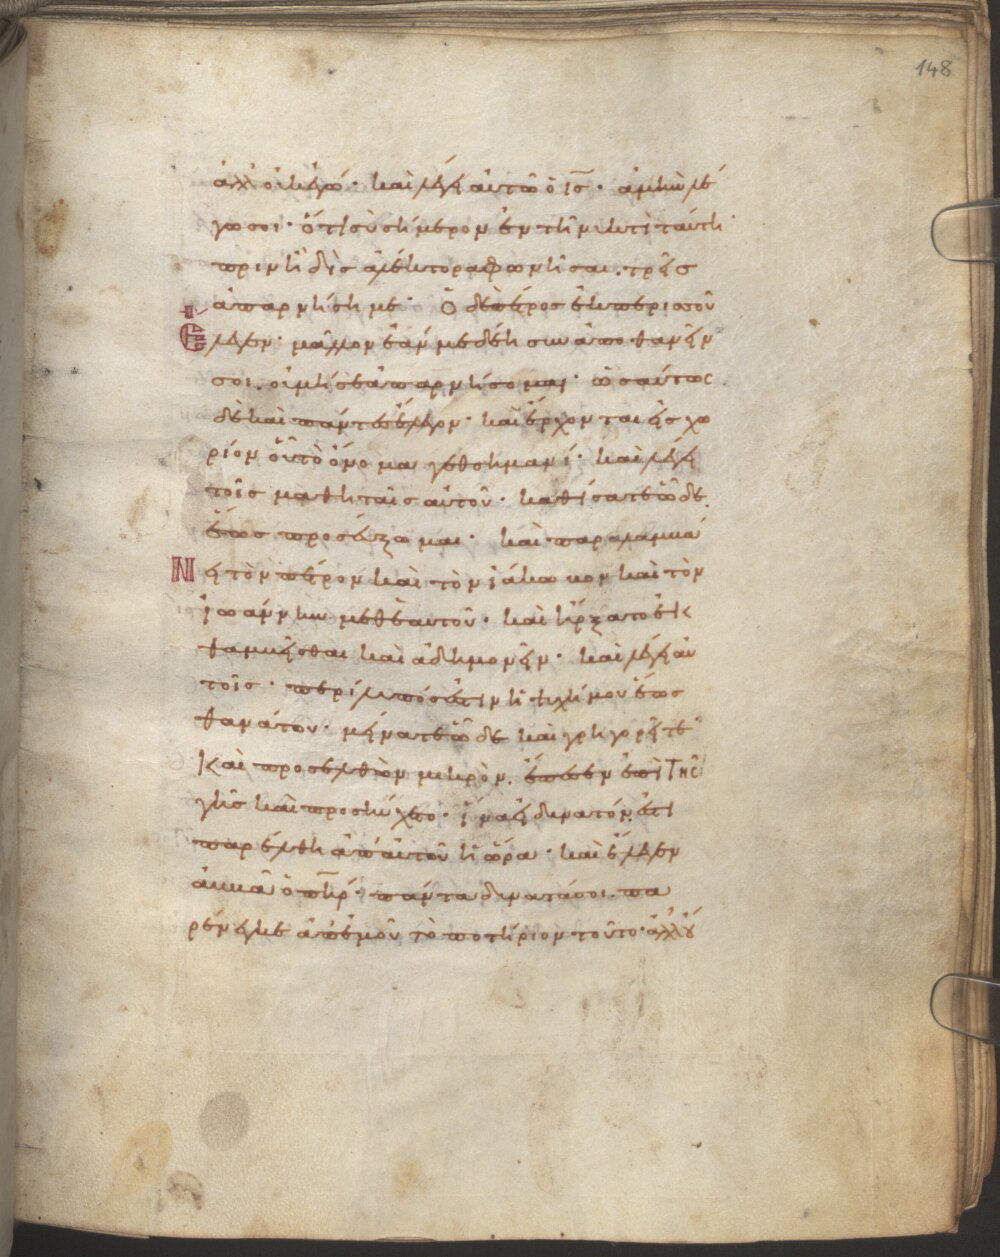 148
ἀλλ οὐκ ἐγώ· καὶ λέγει αὐτῶ ὁ ις· ἀμὴν λέ
γω σοι· ὅτι σὺ σήμερον ἐν τῆ νυκτὶ ταύτη
πρὶν ἢ δὶς ἀλέκτορα φωνῆσαι. τρεῖς
ἀπαρνήση με· Ὁ δὲ πέτρος ἐκ περισσοῦ
ἔλεγεν· μᾶλλον ἐάν με δέη συναποθανεῖν
σοι. οὐ μή σε ἀπαρνήσομαι· ὡσαύτως
δὲ καὶ πάντες ἔλεγον· καὶ ἔρχονται εἰς χω
ρίον οὗ τὸ ὄνομα γεθσημανί· καὶ λέγει
τοῖς μαθηταῖς αὐτοῦ· καθίσατε ὧδε
ἕως προσεύξωμαι· καὶ παραλαμβά
Νει τὸν πέτρον καὶ τὸν ἰάκωβον καὶ τὸν
ἰωάννην μεθ ἑαυτοῦ· καὶ ἤρξατο ἐκ
θαμβεῖσθαι καὶ ἀδημονεῖν· καὶ λέγει αὐ
τοῖς· περίλυπός ἐστιν ἡ ψυχή μου ἕως
θανάτου· μείνατε ὧδε καὶ γρηγορεῖτε
Καὶ προσελθὼν μικρὸν. ἔπεσεν ἐπὶ τῆς
γῆς καὶ προσηύχετο· ἵνα εἰ δυνατόν ἐστι
παρέλθη ἀπ αὐτοῦ ἡ ὥρα· καὶ ἔλεγεν
ἀββᾶ ὁ πηρ· πάντα δυνατά σοι. πα
ρένεγκε ἀπ ἐμοῦ τὸ ποτήριον τοῦτο· ἀλλ οὐ